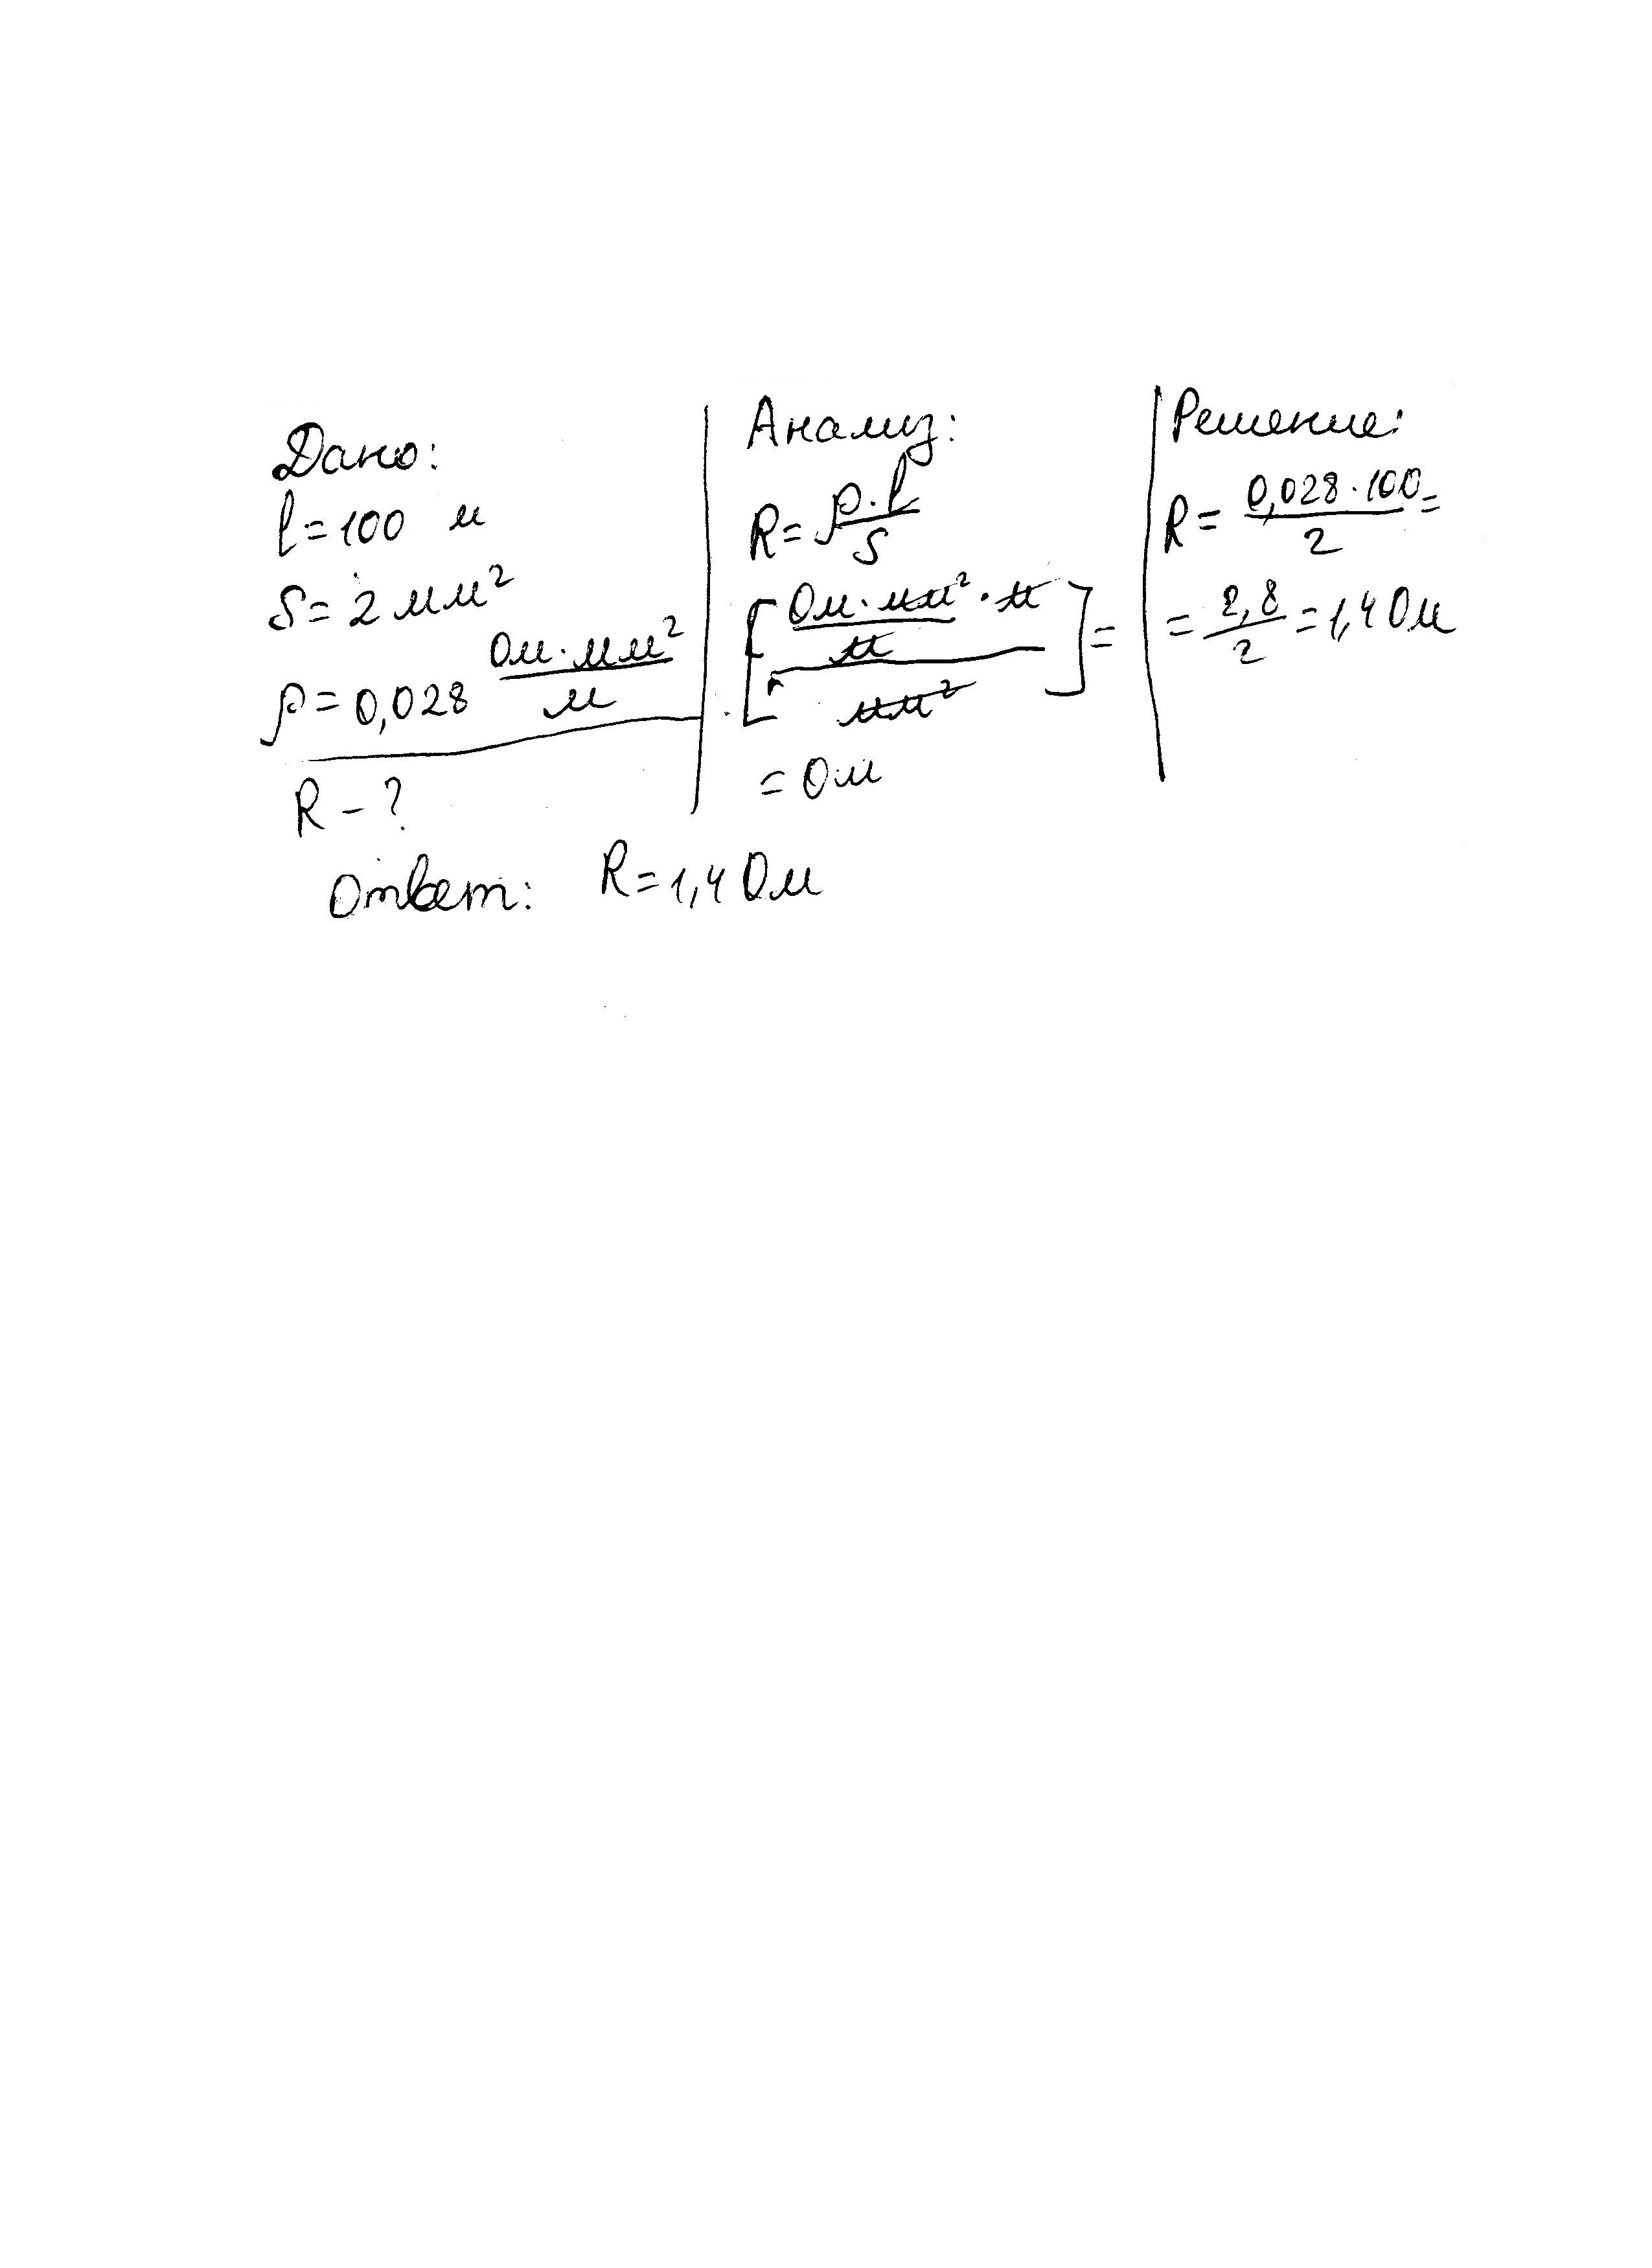 Дано:
l = 100 м
S = 2 мм²
ρ = 0,028 Ом·мм²/м
R - ?
Анализ:
R = ρ·l/S
[Ом·мм²/м · м / мм²] =
= Ом
Решение:
R = 0,028·100/2 =
= 2,8/2 = 1,4 Ом
Ответ: R = 1,4 Ом